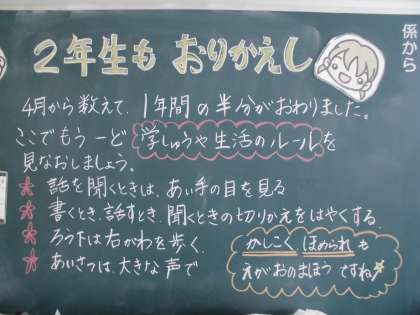 係から
2年生も おりかえし
4月から数えて、1年間の半分がおわりました。
ここでもう一ど 学しゅうや生活のルールを
見なおしましょう。
話を聞くときは、あい手の目を見る
書くとき、話すとき、聞くときの切りかえをはやくする
ろう下は右がわを歩く
あいさつは、大きな声で
かしこく ほめられ も
えがおのまほう ですね